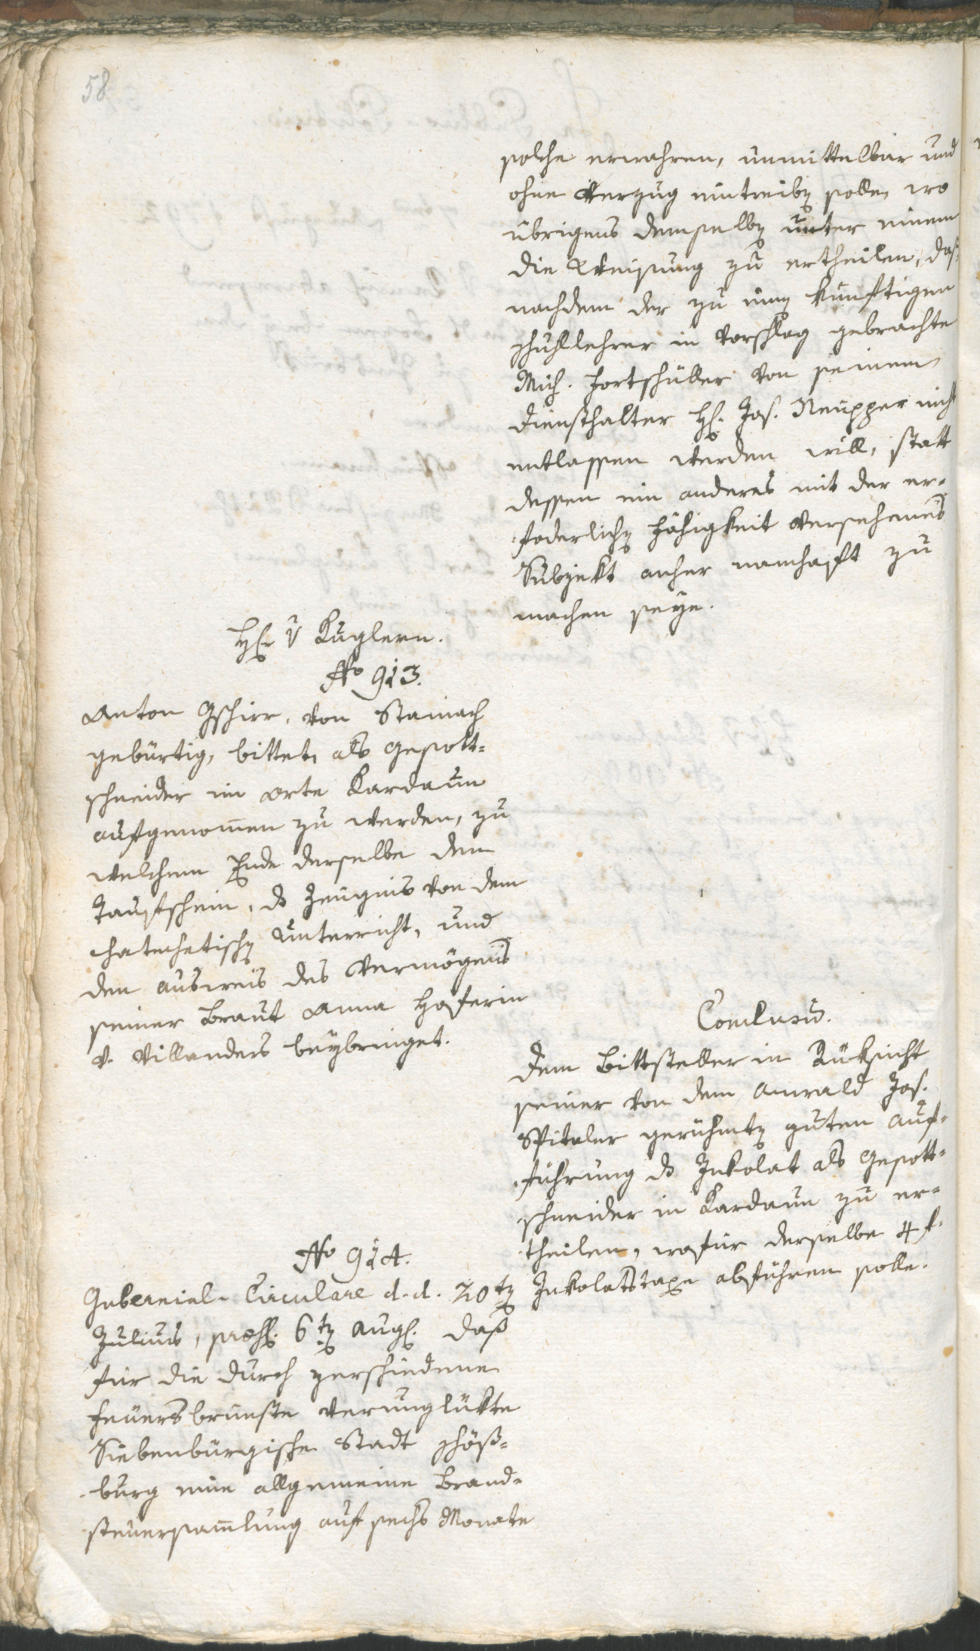 58
solche erwahren, unmittelbar und
ohne Verzug eintreiben solle, wo
übrigens demselben unter einem
die Weisung zu ertheilen, daß
nachdem der zu einem künftigen
Schullehrer in Vorschlag gebrachte
Mich. Fortschüller von seinem
Diensthalter H. Jos. Neupper nicht
entlassen werden will, statt
dessen ein anderes mit der er-
foderlichen Fähigkeit versehenes
Subjekt anher namhaft zu
machen seye.
H. v Kuglern.
No 913.
Anton Gschirr, von Stainach
gebürtig, bittet, als Gesott-
schneider im Orte Kardaun
aufgenommen zu werden, zu
welchem Ende derselbe den
Taufschein, das Zeugnis von dem
chatechetischen Unterricht, und
den Ausweis des Vermögens
seiner Braut Anna Hoferin
v. Villanders beybringet.
Conclusum.
Dem Bittsteller in Rüksicht
seiner von dem Anwald Jos.
Spitaler gerühmten guten Auf-
führung das Inkolat als Gesott-
schneider in Kardaun zu er-
theilen, wofür derselbe 4 f.
Inkolatstaxe abführen solle.
No 914.
Gubernial-Circulare d. d. 20ten
Julius, præs. 6ten Aug. daß
für die durch verschiedene
Feuersbrünste verunglükte
Siebenbürgische Stadt Schäß-
burg eine allgemeine Brand-
steuersammlung auf sechs Monate